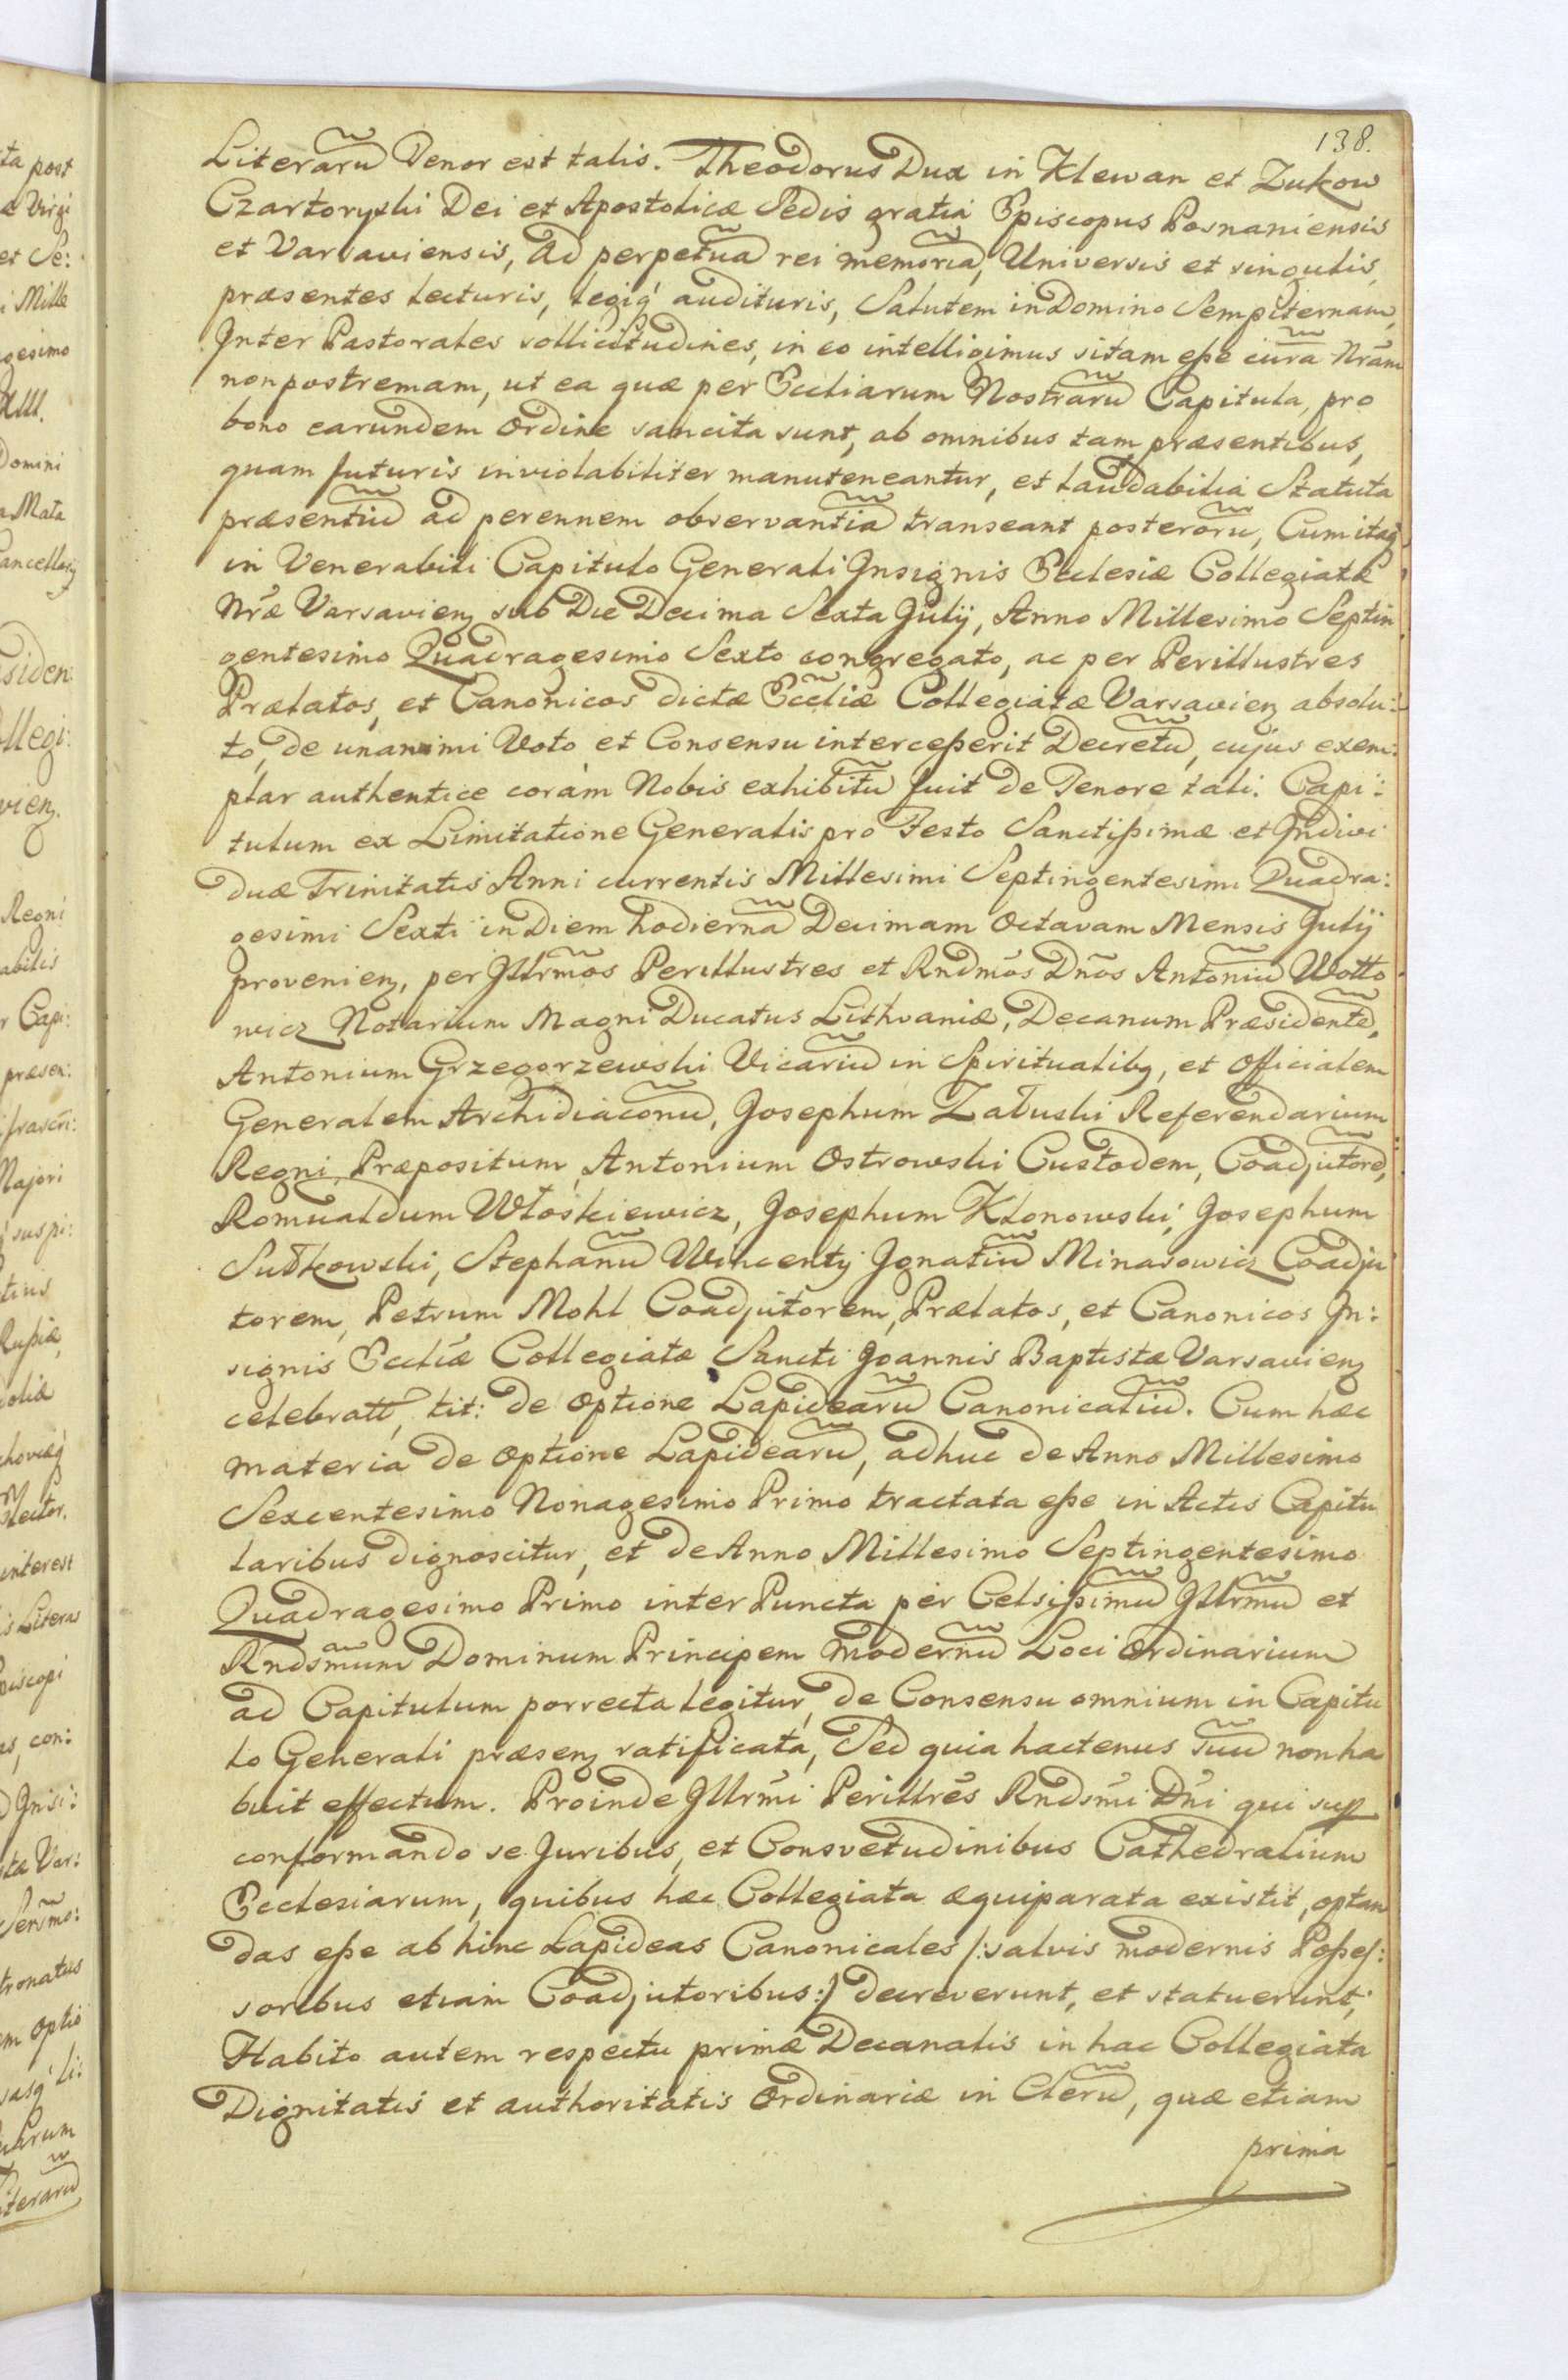 138.
Literarũ Tenor est talis. Theodorus Dux in Klewan et Zukow
Czartoryski Dei et Apostolicæ Sedis gratia Episcopus Posnaniensis
et Varsaviensis, Ad perpetuã rei memoriã, Universis et singulis,
præsentes lecturis, legiq́ audituris, Salutem in Domino Sempiternam,
Inter Pastorales sollicitudines, in eo intelligimus sitam eße curã Nrãm
non postremam, ut ea quæ per Eccliarum Nostrarũ Capitula, pro
bono earundem ordine sancita sunt, ab omnibus tam præsentibus,
quam futuris inviolabiliter manuteneantur, et laudabilia Statuta
præsentiũ ad perennem observantiã transeant posterorũ, Cum itaq́
in Venerabili Capitulo Generali Insignis Ecclesiæ Collegiatæ
Nræ̃ Varsavieng sub Die Decima Sexta Julij, Anno Millesimo Septin
gentesimo Quadragesimo Sexto congregato, ac per Perillustres
Prælatos, et Canonicos dictæ Eccliæ̃ Collegiatæ Varsavieng absolu:
to, de unanimi Voto et Consensu interceßerit Decretũ, cujus exem:
plar authentice coràm Nobis exhibitũ fuit de Tenore tali. Capi:
tulum ex Limitatione Generalis pro Festo Sanctißimæ et Indivi
duæ Trinitatis Anni currentis Millesimi Septingentesimi Quadra:
gesimi Sexti in Diem hodiernã Decimam Octavam Mensis Julij
provenieng, per Illrmõs Perillustres et Rndmõs Dnõs Antoniũ Wotto
wicz Notarium Magni Ducatus Lithvaniæ, Decanum Præsidentẽ,
Antonium Grzegorzewski Vicariũ in Spiritualibg, et Officialem
Generalem Archidiaconũ, Josephum Załuski Referendarium
Regni, Præpositum, Antonium Ostrowski Custodem, Coadjutorẽ,
Romualdum Włoskiewicz, Josephum Kłonowski, Josephum
Sułkowski, Stephanũ Wincenty Ignatiũ Minasowicz Coadju
torem, Petrum Mohl Coadjutorem, Prælatos, et Canonicos In:
signis Eccliæ̃ Collegiatæ Sancti Joannis Baptistæ Varsavieng
celebratt, tit: de optione Lapidearũ Canonicaliũ. Cum hæc
materia de optione Lapidearũ, adhuc de Anno Millesimo
Sexcentesimo Nonagesimo Primo tractata eße in Actis Capitu
laribus dignoscitur, et de Anno Millesimo Septingentesimo
Quadragesimo Primo inter Puncta per Celsißimũ Illrmũ et
Rndsm̃um Dominum Principem modernũ Loci Ordinarium
ad Capitulum porrecta legitur, de Consensu omnium in Capitu
lo Generali præseng ratificata, Sed quia hactenus suũ non ha
buit effectum. Proinde Illrmĩ Perillrẽs Rndsmĩ Dnĩ qui sup
conformando se Juribus, et Consvetudinibus Cathedralium
Ecclesiarum, quibus hæc Collegiata æquiparata existit, optan
das eße ab hinc Lapideas Canonicales /:salvis modernis Poßes:
soribus etiam Coadjutoribus:/ decreverunt, et statuerunt;
Habito autem respectu primæ Decanalis in hac Collegiata
Dignitatis et authoritatis Ordinariæ in Clerũ, quæ etiam
prima